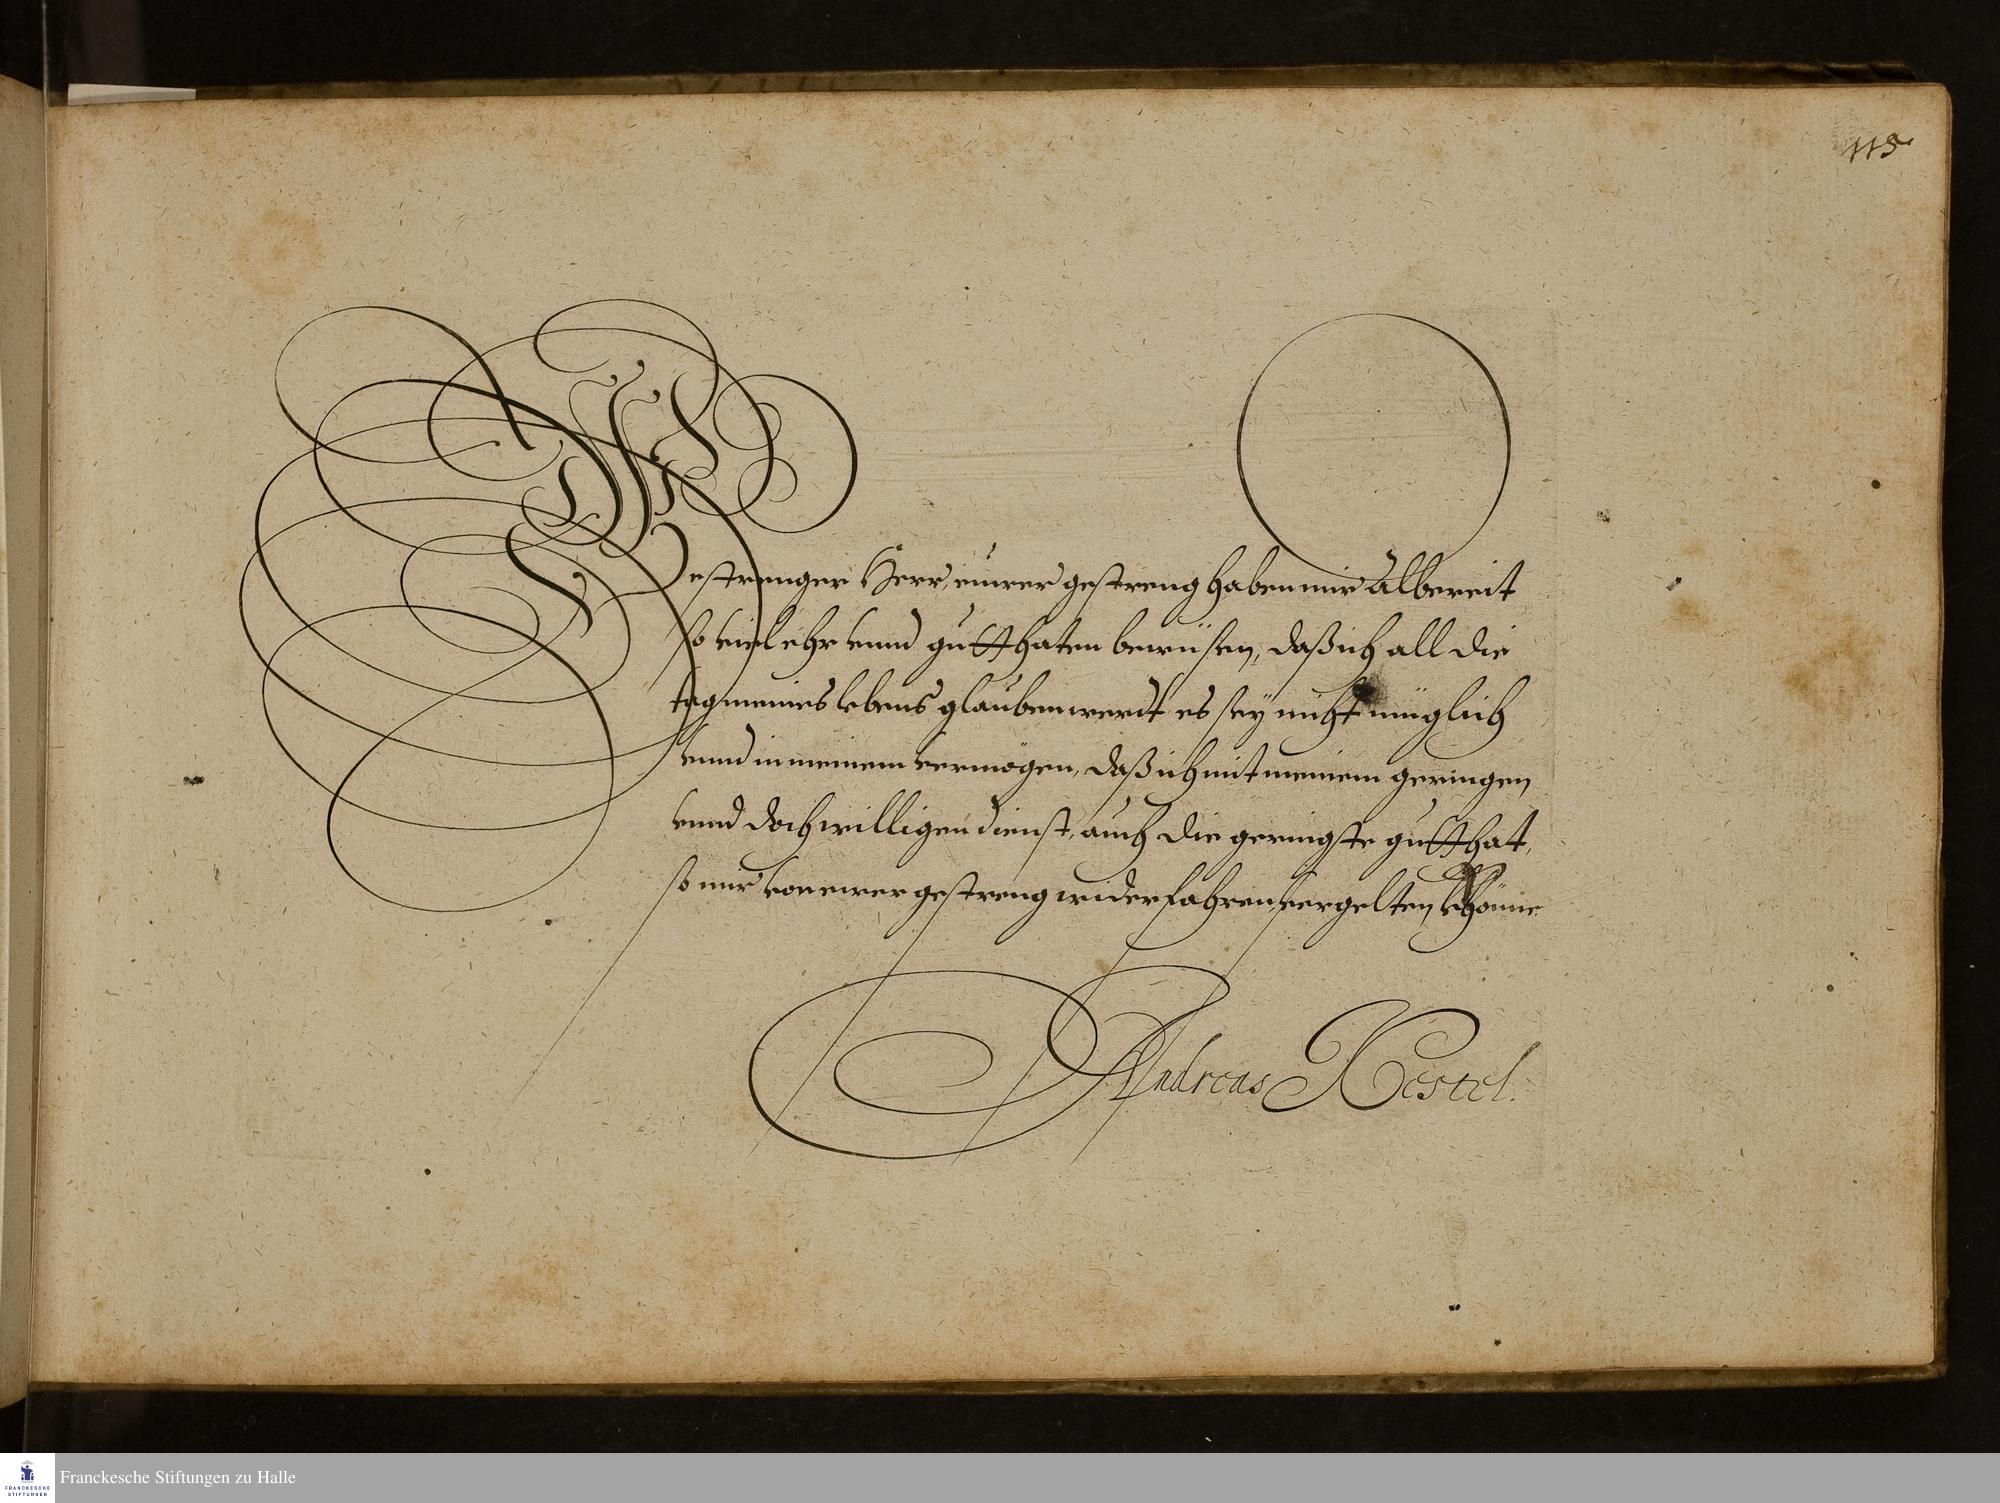 115
Gestrenger Herr, eurer gestreng haben mir Albereit
so viel ehr vnnd gutthaten bewisen, daß ich all die
tag meines lebens glauben werdt es sey nicht müglich
vnnd in meinem vermögen, daß ich mit meinem geringen
vnnd doch willigen dienst, auch die geringste gutthat,
so mir von ewer gestreng widerfahren, vergelten khönne
Andreas Kestel.
Franckesche Stiftungen zu Halle
FRANCKESCHE
STIFTUNGEN